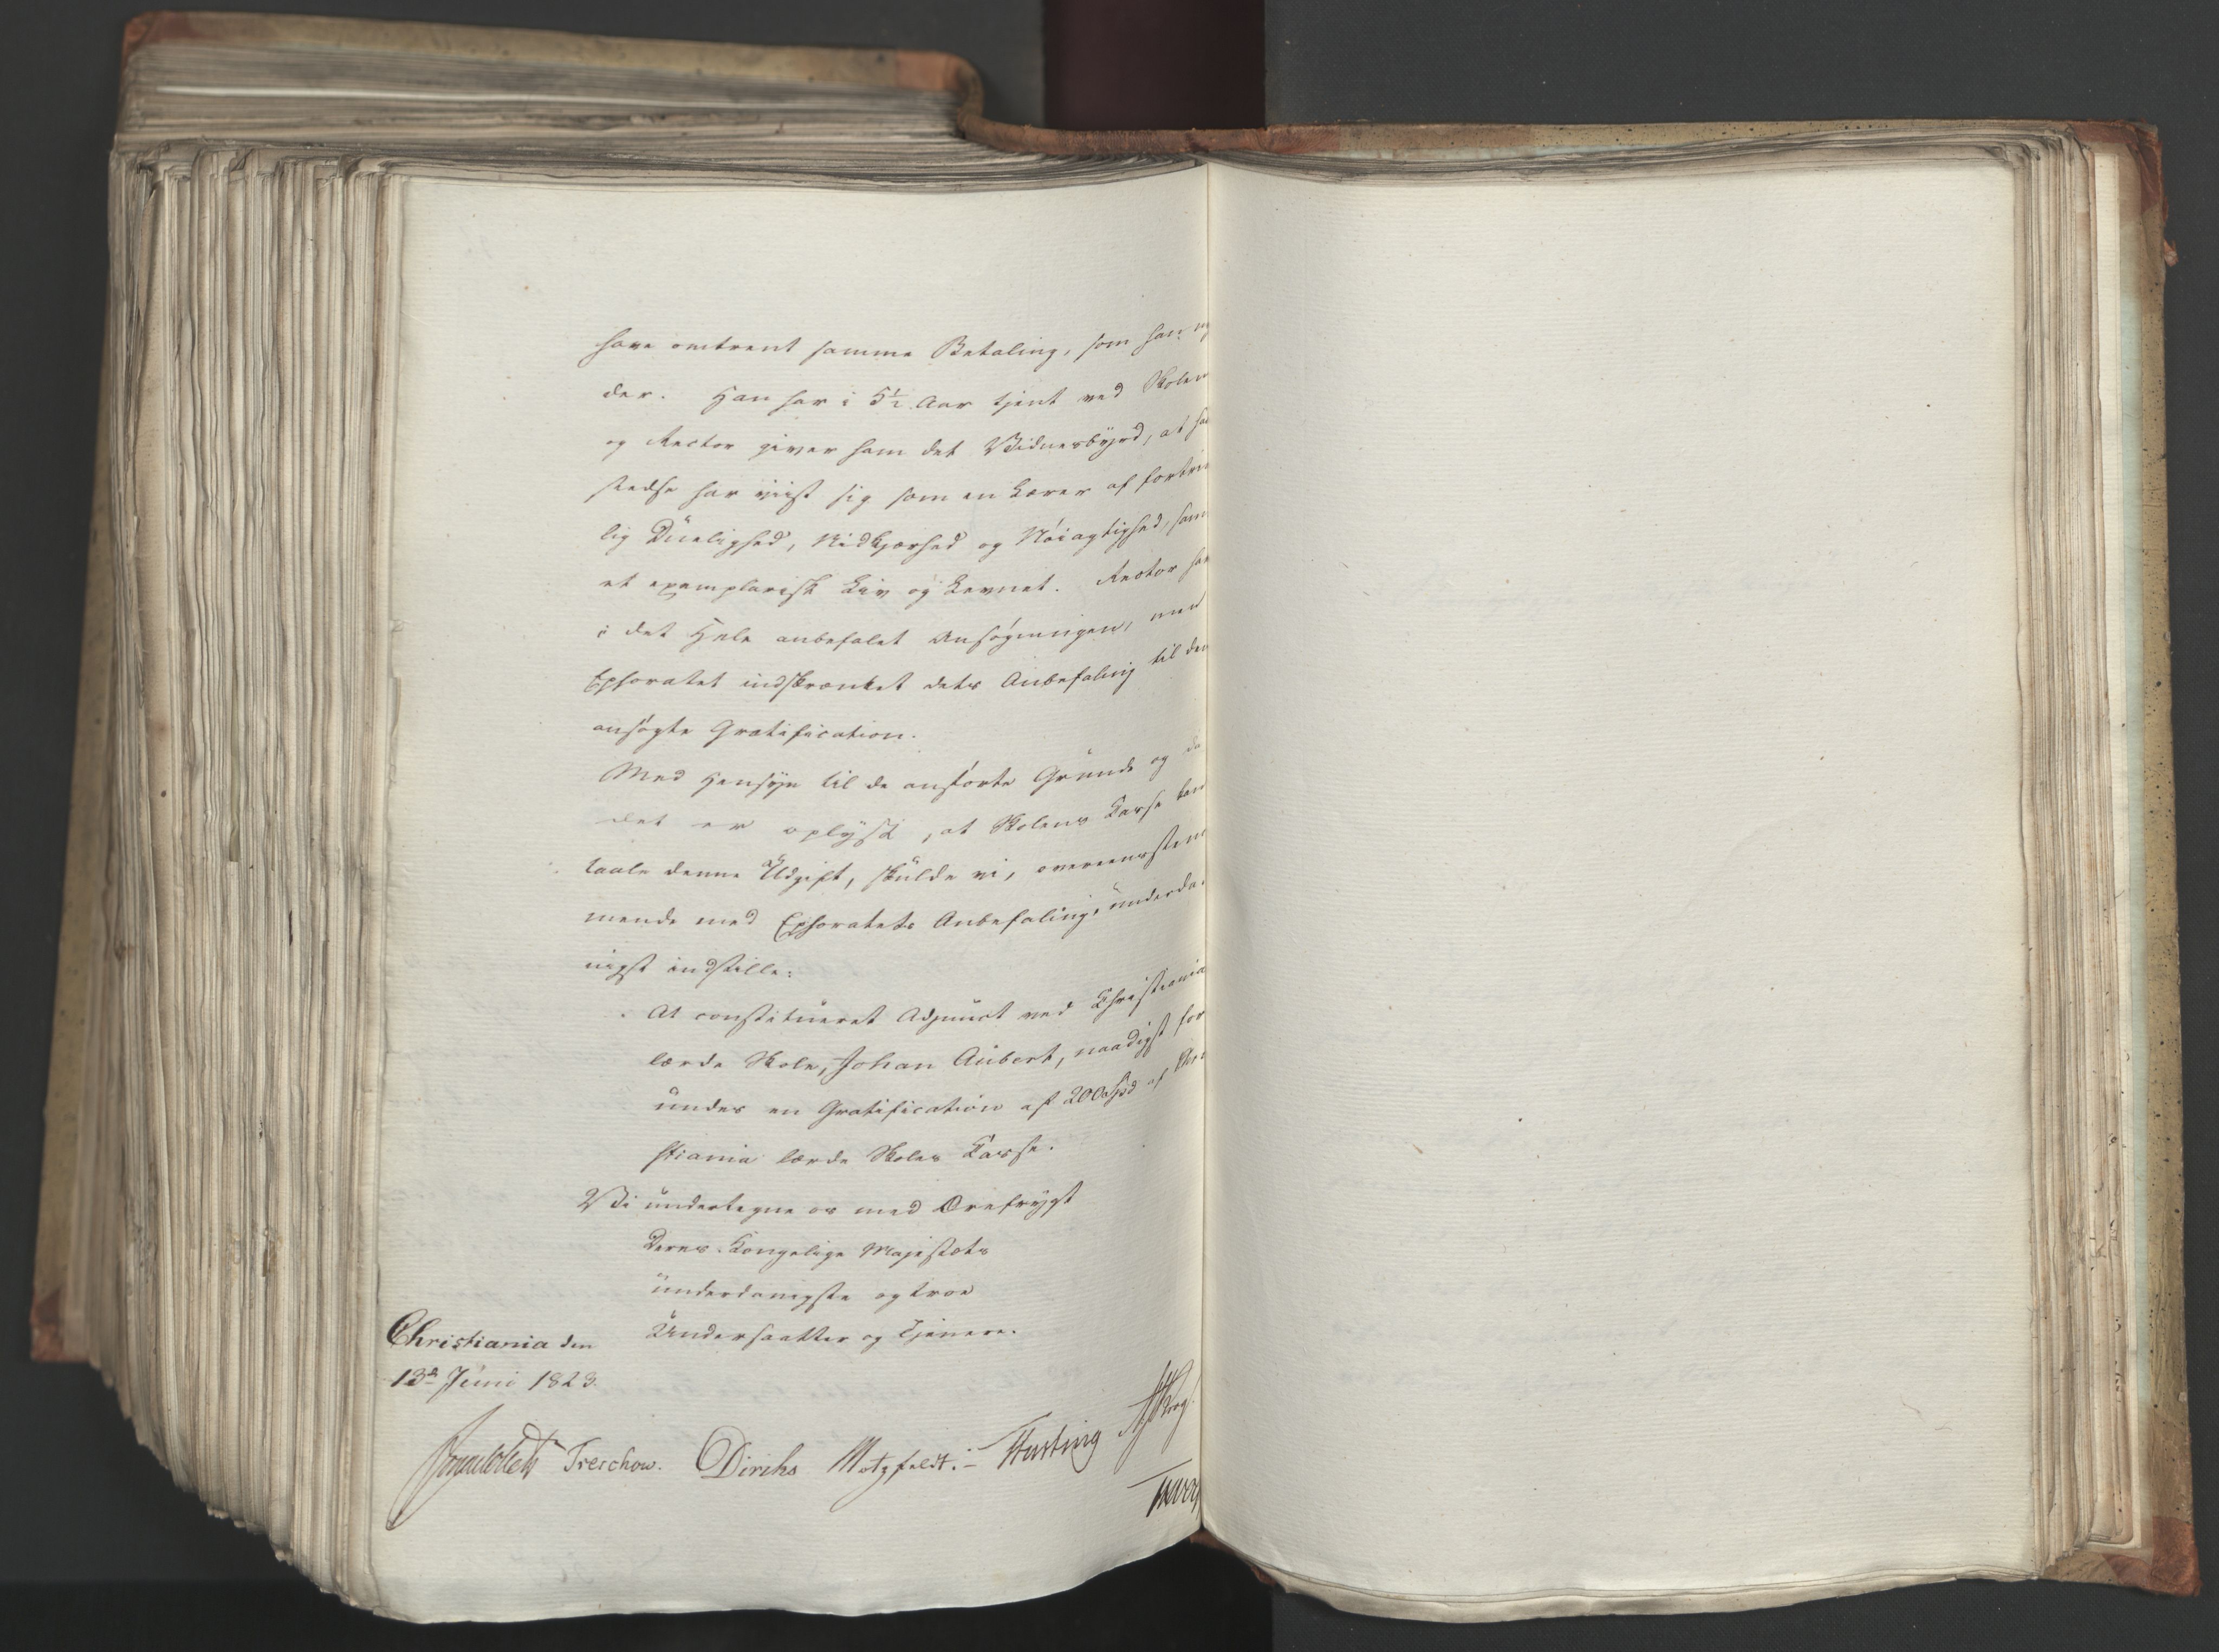 have omtrent samme Betaling, som han ny
der. Han har i 5½ Aar tjent ved Skolen
og Rector giver ham det Vidnesbyrd, at han
stedse har viist sig som en Lærer af fortrin
lig Duelighed, Nidkjærhed og Nøiagtighed, samt
et exemplarisk Liv og Levnet. Rector har
i det Hele anbefalet Ansøgningen, men
Ephoratet indskrænket dets Anbefaling til den
ansøgte Gratification.
Med Hensyn til de anførte Grunde og da
det er oplyst, at Skolens Casse kan
taale denne Udgift, skulde vi, overeensstem
mende med Ephoratets Anbefaling, underda
nigst indstille:
At constitueret Adjunct ved Christiania
lærde Skole, Johan Aubert, naadigst for
undes en Gratification af 200 Spd af Chri
stiania lærde Skoles Casse.
Vi undertegne os med Ærefrygt
Deres Kongelige Majestæts
underdanigste og troe
Undersaatter og Tjenere.
Christiania den
13de Juni 1823.
Treschow. Diriks Motzfeldt. Krog